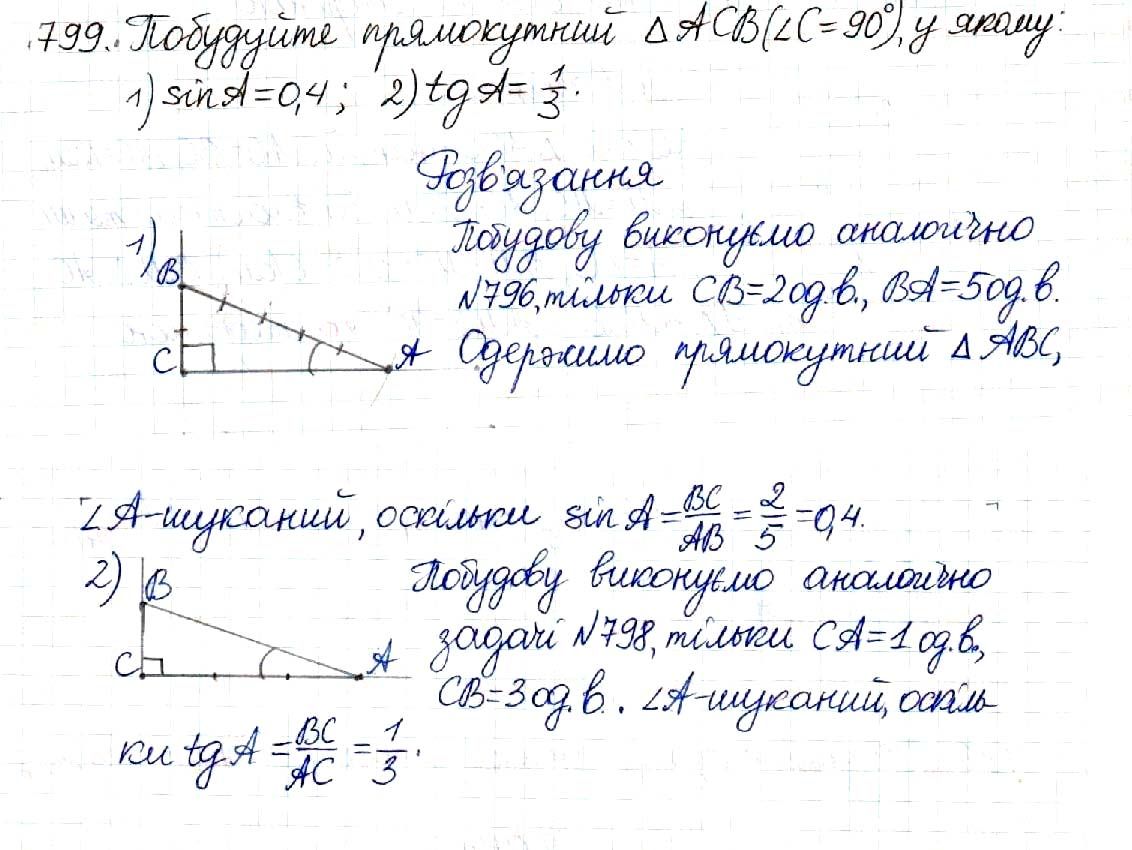 799. Побудуйте прямокутний △ACB(∠C=90°), у якому:
1) sinA=0,4; 2) tgA=1/3.
Розв'язання
1)
B
C
A
Побудову виконуємо аналогічно
№796, тільки CB=2од.в., BA=5од.в.
Одержимо прямокутний △ABC,
∠A-шуканий, оскільки sin A=BC/AB=2/5=0,4.
2)
B
C
A
Побудову виконуємо аналогічно
задачі №798, тільки CA=1од.в.,
CB=3од.в. . ∠A-шуканий, оскіль-
ки tgA=BC/AC=1/3.